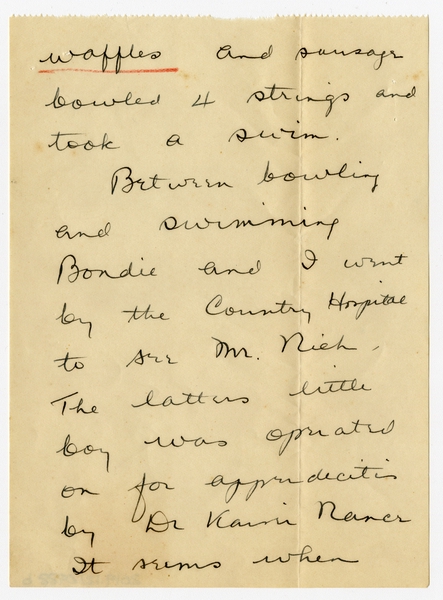 waffles and sausage
bowled 4 strings and
took a swim.
Between bowling
and swimming
Bondie and I went
by the Country Hospital
to see Mr. Nich.
The latters little
boy was operated
on for appendecitis
by Dr Nance
It seems when